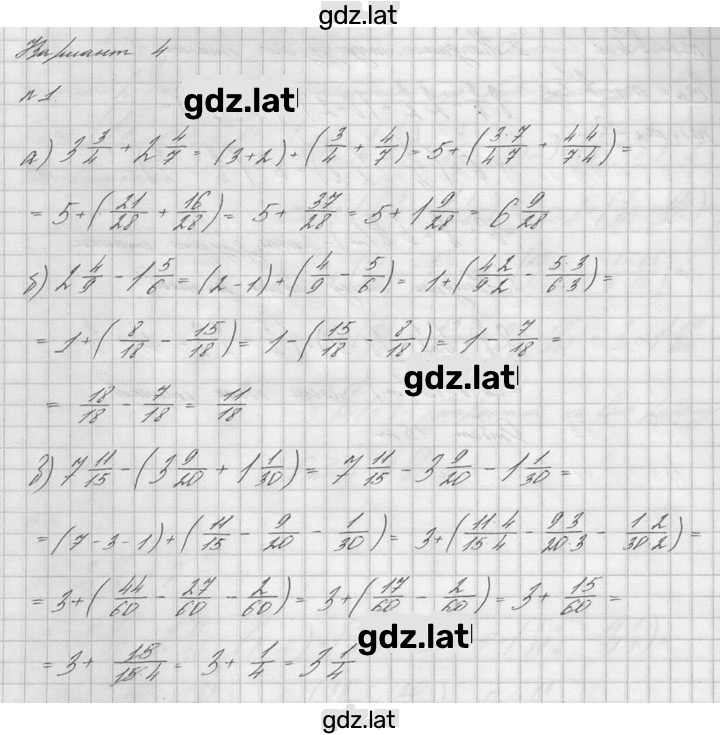 gdz.lat
Вариант 4
№1.
gdz.lat
а) 3 3/4 + 2 4/7 = (3+2) + (3/4 + 4/7) = 5 + (3·7/4·7 + 4·4/7·4) =
= 5 + (21/28 + 16/28) = 5 + 37/28 = 5 + 1 9/28 = 6 9/28
б) 2 4/9 - 1 5/6 = (2-1) + (4/9 - 5/6) = 1 + (4·2/9·2 - 5·3/6·3) =
= 1 + (8/18 - 15/18) = 1 - (15/18 - 8/18) = 1 - 7/18 =
gdz.lat
= 18/18 - 7/18 = 11/18
в) 7 11/15 - (3 9/20 + 1 1/30) = 7 11/15 - 3 9/20 - 1 1/30 =
= (7-3-1) + (11/15 - 9/20 - 1/30) = 3 + (11·4/15·4 - 9·3/20·3 - 1·2/30·2) =
= 3 + (44/60 - 27/60 - 2/60) = 3 + (17/60 - 2/60) = 3 + 15/60 =
gdz.lat
= 3 + 15/15·4 = 3 + 1/4 = 3 1/4
gdz.lat